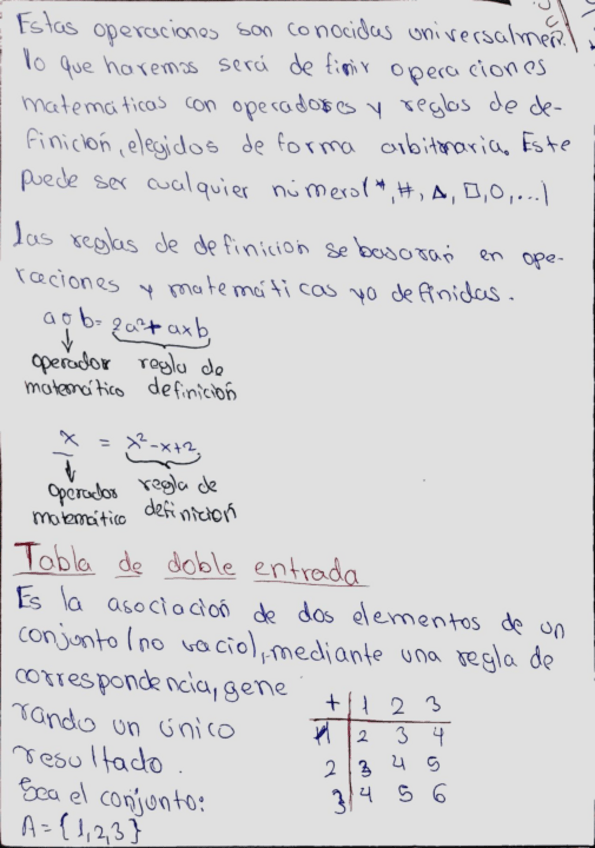 Estas operaciones son conocidas universalmen.
lo que haremos será definir operaciones
matemáticas con operadores y reglas de de-
finición, elegidos de forma arbitraria. Este
puede ser cualquier número (*, #, Δ, □, O, ...)
las reglas de definición se basarán en ope-
raciones y matemáticas ya definidas.
a o b = 2a²+ axb
operador regla de
matemático definición
x = x²-x+2
operador regla de
matemático definición
Tabla de doble entrada
Es la asociación de dos elementos de un
conjunto (no vacio), mediante una regla de
correspondencia, gene
rando un único
resultado.
Sea el conjunto:
A = {1,2,3}
+ 1 2 3
1 2 3 4
2 3 4 5
3 4 5 6